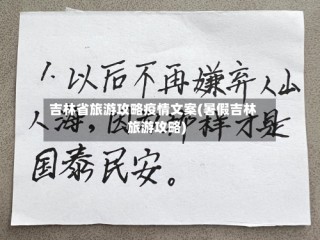 1.以后不再嫌弃人山
吉林省旅游攻略疫情文案(暑假吉林
旅游攻略)
人海,因为那样才是
国泰民安。